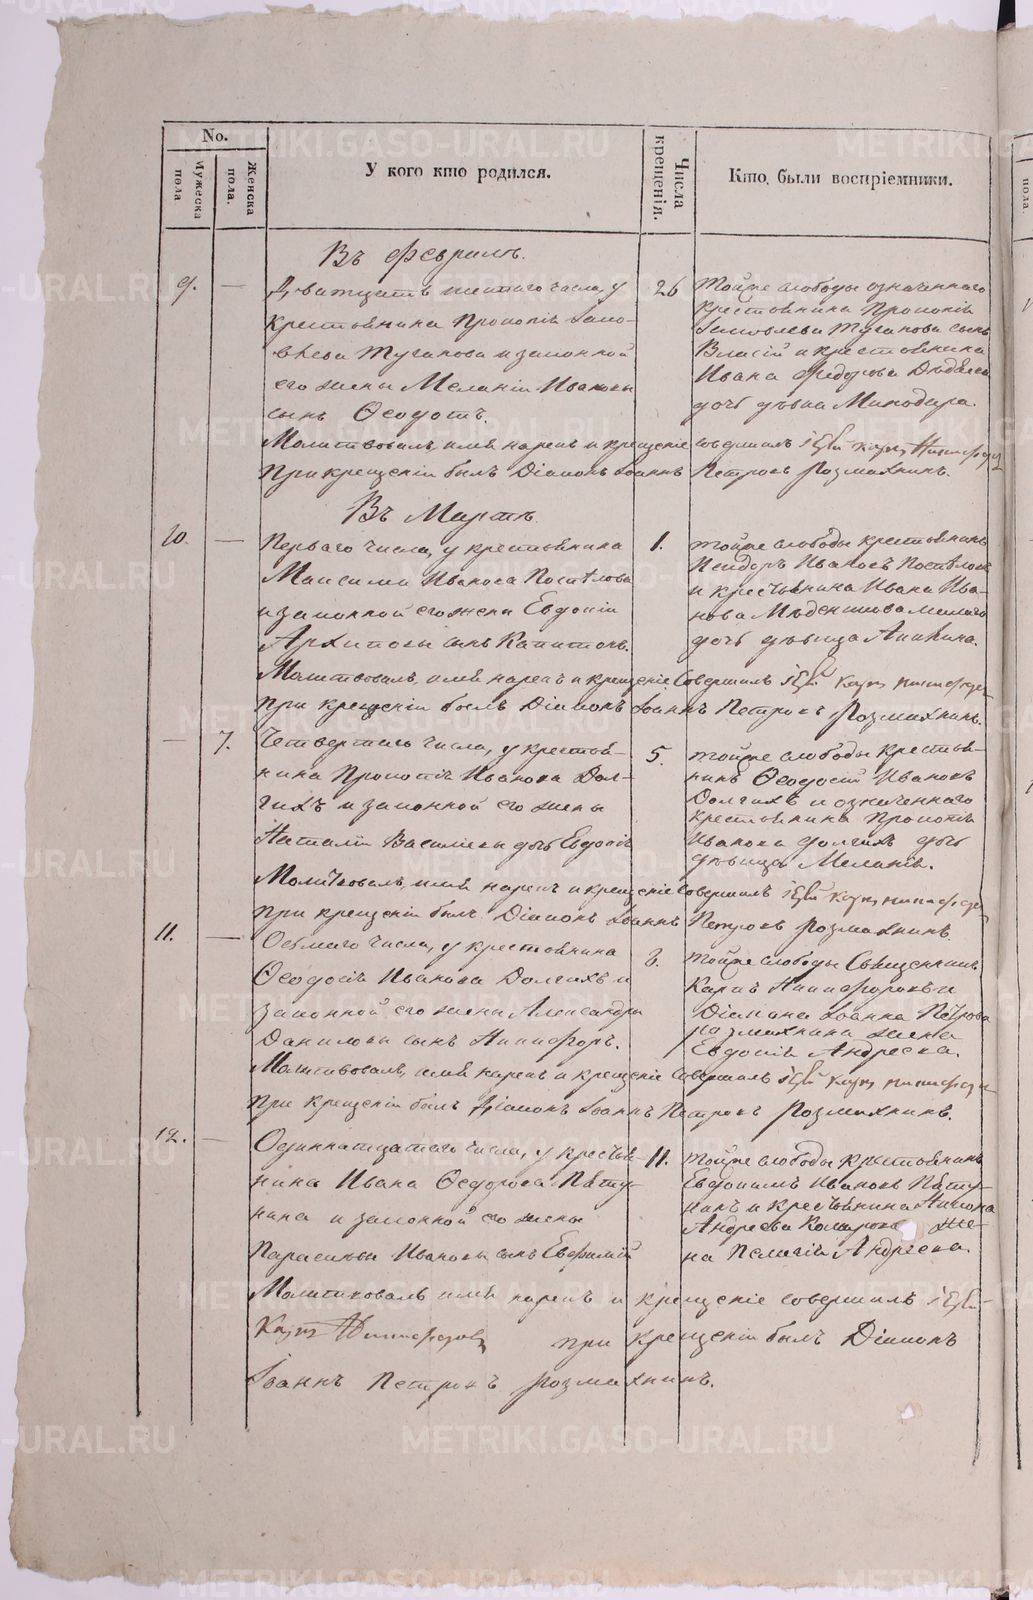 No.
Мужеска пола
Женска пола.
У кого кто родился.
Числа крещенія.
Кто были воспріемники.
Въ Февралѣ.
9. — Двадцать шестаго числа, у
крестьянина Прокопія
Тучакова и законной
его жены Меланіи Ивановы
сынъ Ѳеодотъ.
26
тойже слободы означеннаго
крестьянина Прокопія
Тучакова сынъ
Власій и крестьянина
Ивана Федорова
дочь дѣвка Минодора.
Молитвовалъ, имя нарекъ и крещеніе совершилъ
При крещеніи былъ Діаконъ Іоаннъ Петровъ Розмахнинъ.
Въ Мартѣ
10. — Перваго числа, у крестьянина
Максима Иванова Поспѣлова
и законной его жены Евдокіи
Архиповы сынъ Капитонъ.
1.
тойже слободы крестьянинъ
Ивановъ Поспѣловъ
и крестьянина Ивана Ива-
нова
дочь дѣвица
Молитвовалъ, имя нарекъ и крещеніе совершилъ
при крещеніи былъ Діаконъ Іоаннъ Петровъ Розмахнинъ.
— 7. Четвертаго числа, у крестья-
нина Прокопія Иванова Дол-
гихъ и законной его жены
Наталіи Васильевы дочь Евдокія
5.
тойже слободы крестья-
нинъ Ѳеодосій Ивановъ
Долгихъ и означеннаго
крестьянина Прокопія
Иванова Долгихъ дочь
дѣвица Меланія.
Молитвовалъ, имя нарекъ и крещеніе совершилъ
при крещеніи былъ Діаконъ Іоаннъ Петровъ Розмахнинъ.
11. — Осьмаго числа, у крестьянина
Ѳеодосія Иванова Долгихъ и
законной его жены Александры
Даниловы сынъ Никифоръ.
8.
тойже слободы Священникъ
Карпъ Никифоровъ и
Діакона Іоанна Петрова
Розмахнина жена
Евдокія Андреева.
Молитвовалъ, имя нарекъ и крещеніе совершилъ
при крещеніи былъ Діаконъ Іоаннъ Петровъ Розмахнинъ.
12. — Одиннатцатаго числа, у крестья-
нина Ивана Ѳедорова
и законной его жены
Парасковьи Ивановы сынъ Евфимій
11.
тойже слободы крестьянинъ
Евдокимъ Ивановъ
и крестьянина
Андреева же-
на Пелагія Андреева.
Молитвовалъ имя нарекъ и крещеніе совершилъ
Никифоровъ при крещеніи былъ Діаконъ
Іоаннъ Петровъ Розмахнинъ.
METRIKI.GASO-URAL.RU